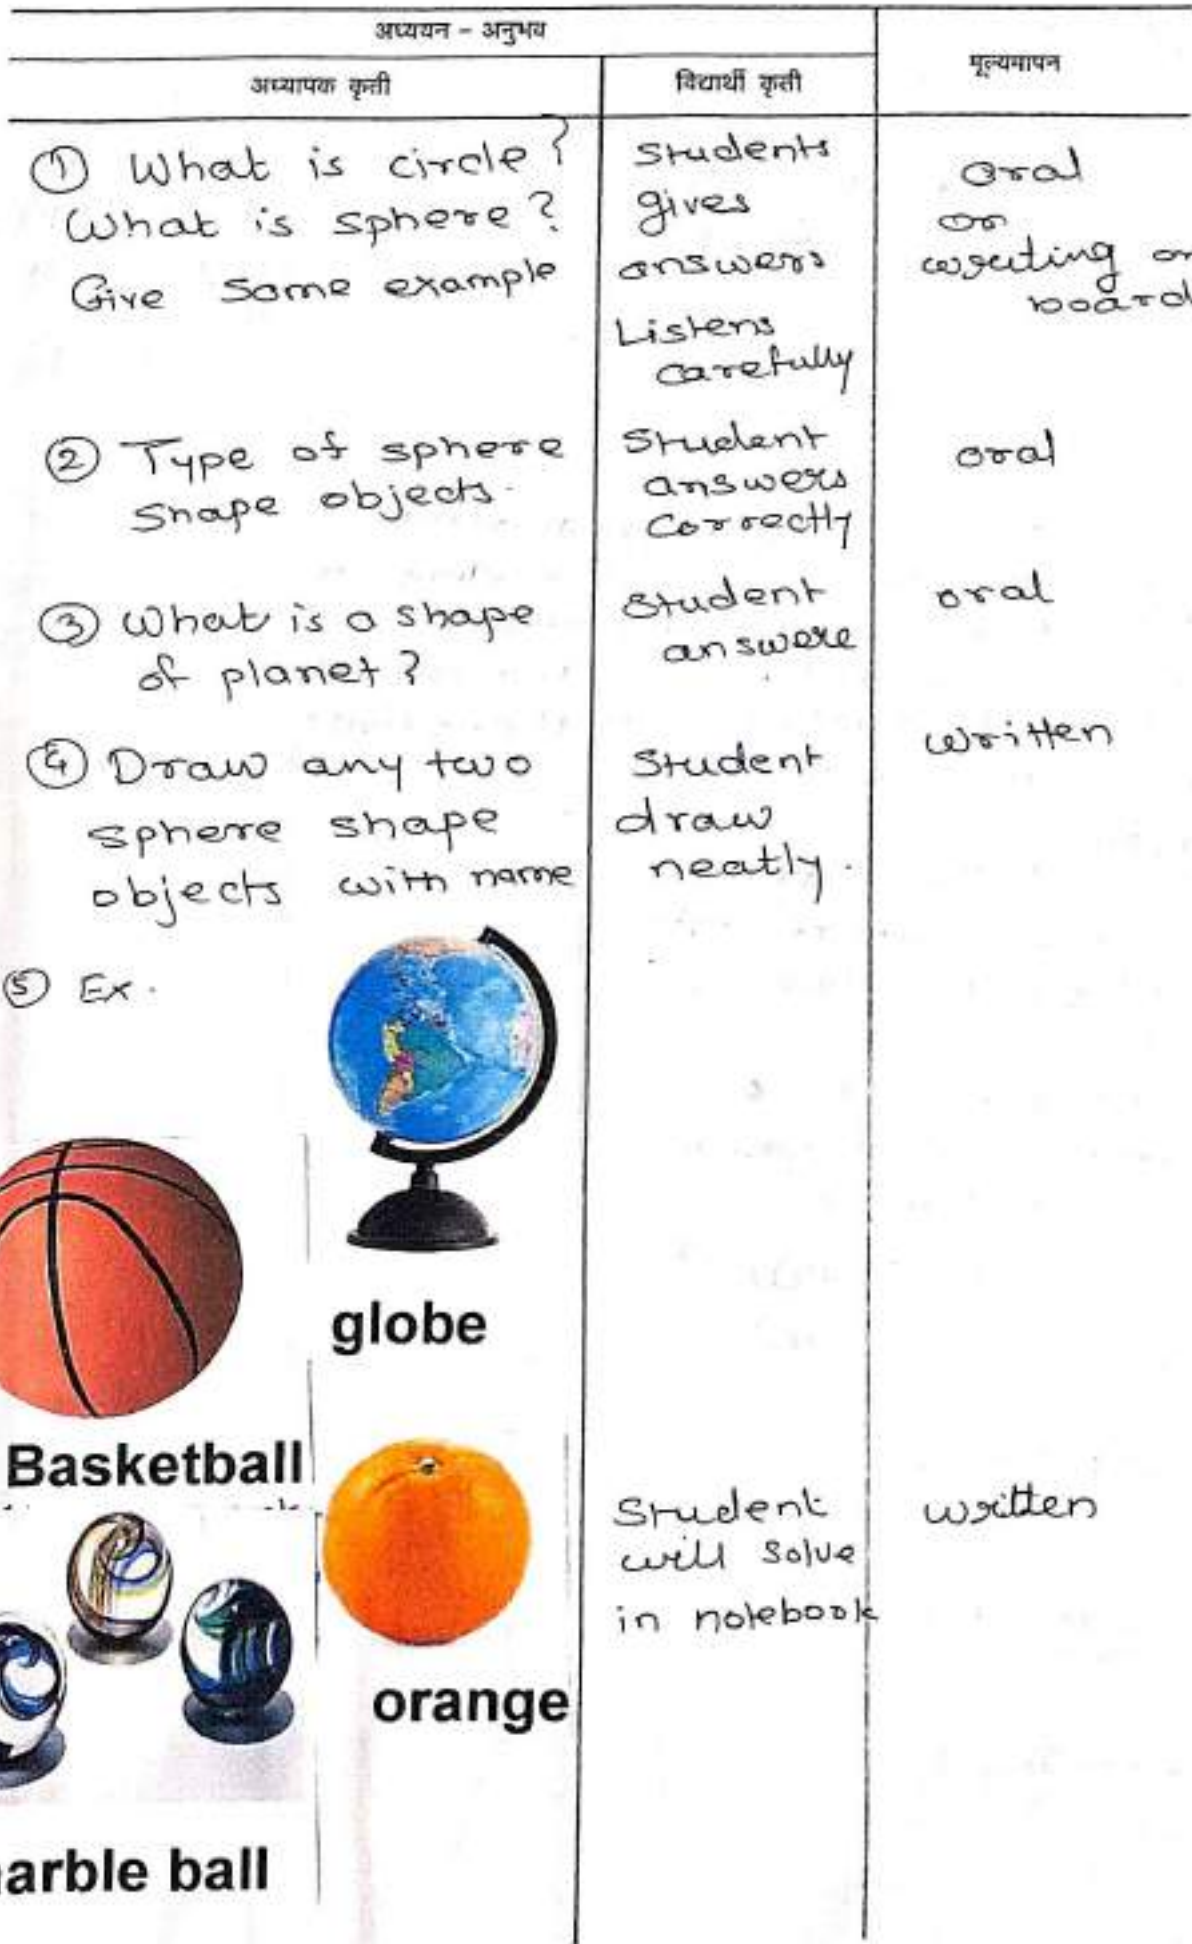 अध्ययन - अनुभव
अध्यापक कृती
विद्यार्थी कृती
मूल्यमापन
① What is circle?
What is sphere?
Give some example
Students
gives
answers
Listens
carefully
oral
or
writing on
board
② Type of sphere
shape objects.
Student
answers
correctly
oral
③ What is a shape
of planet?
Student
answere
oral
④ Draw any two
sphere shape
objects with name
Student
draw
neatly.
written
⑤ Ex.
globe
Basketball
orange
Student
will solve
in notebook
written
arble ball